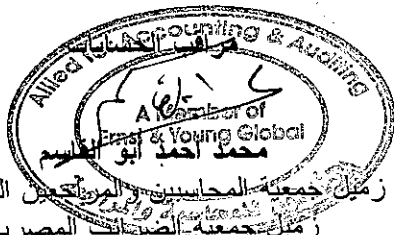 مراقب الحسابات
Allied for Accounting & Auditing
A member of
Ernst & Young Global
محمد أحمد أبو القاسم
زميل جمعية المحاسبين والمراجعين
زميل جمعية الضرائب